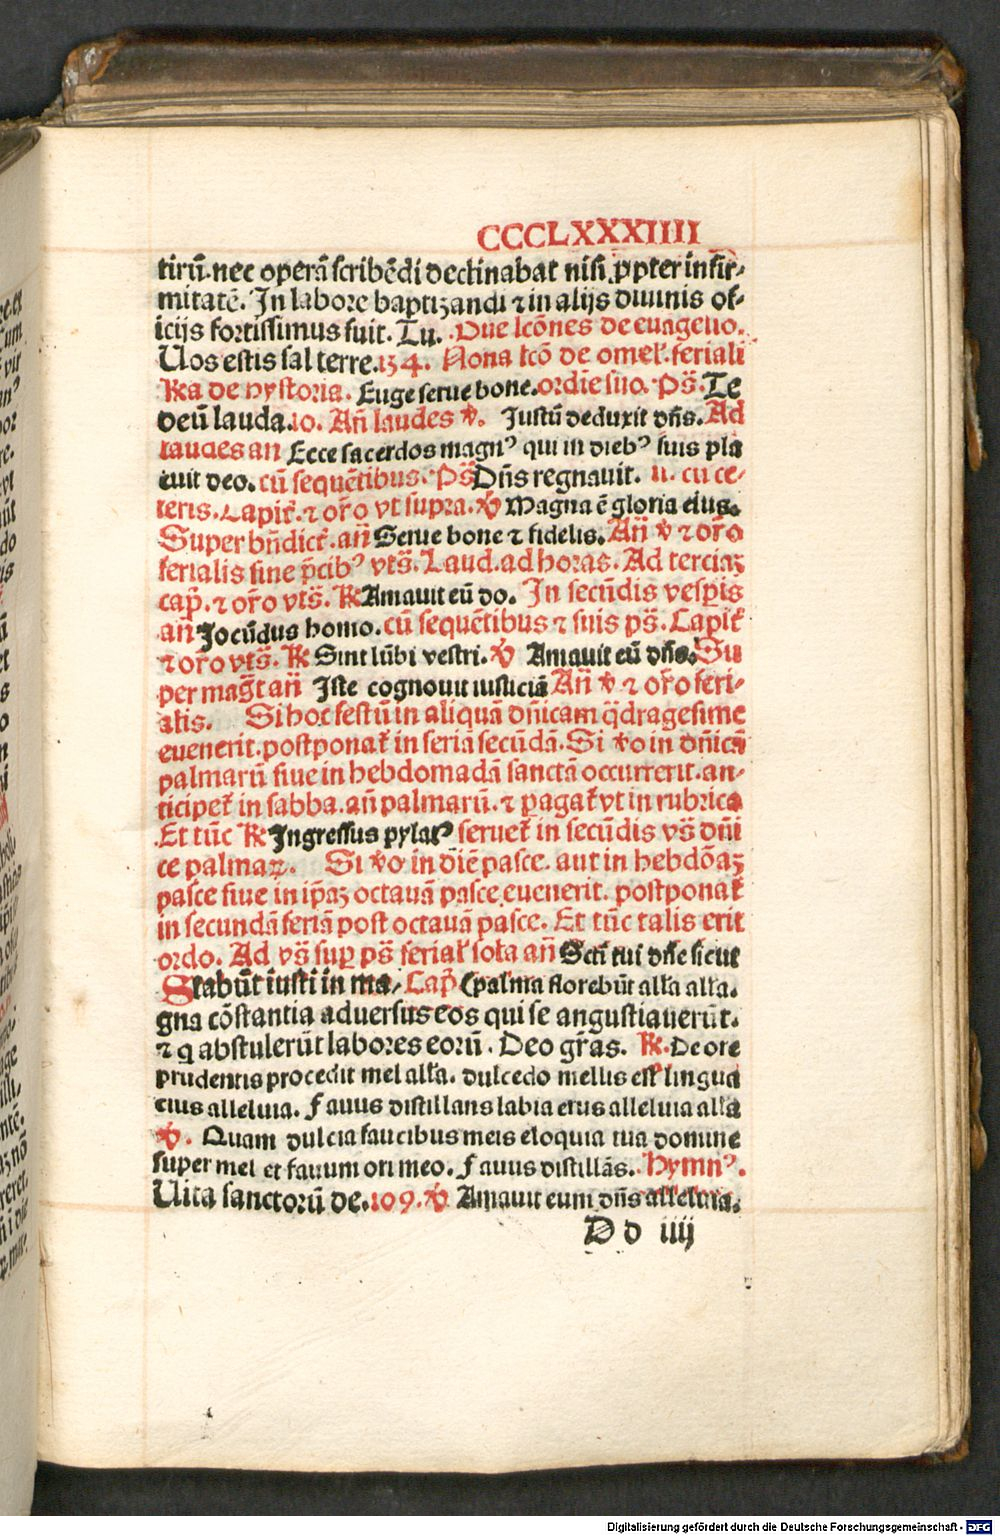 CCCLXXXIIII
tirū. nec operā scribēdi declinabat nisi ꝓpter infir-
mitatē. In labore baptizandi ⁊ in alijs diuinis of-
icijs fortissimus fuit. Tu. Due lcōnes de euāgelio.
Uos estis sal terre. 134. Nona lcō de omeł. feriali
Rͣa de hystoria. Euge serue bone. ordīe suo. Ps̄. Te
deū lauda. 10. An̄ laudes ℣. Justū deduxit dn̄s. Ad
laudes an Ecce sacerdos magnꝰ qui in diebꝰ suis pla
cuit deo. cū sequētibus. Ps̄ Dn̄s regnauit. ıı. cū ce-
teris. Capit᷑. ⁊ or̄o vt supra. ℣ Magna ē gloria eius.
Super bn̄dict᷑. an̄ Serue bone ⁊ fidelis. An̄ ℣ ⁊ or̄o
ferialis sine p̄cibꝰ vts̄. Laud. ad horas. Ad terciaꝫ
cap̄. ⁊ or̄o vts̄. ℟ Amauit eū do. In secūdis vesꝑis
an̄ Jocūdus homo. cū sequētibus ⁊ suis ps̄. Capit᷑
⁊ or̄o vts̄. ℟ Sint lūbi vestri. ℣ Amauit eū dn̄s. Su
per mag̅t an̄ Iste cognouit iusticiā An̄ ℣ ⁊ or̄o feri-
alis. Si hoc festū in aliquā dn̄icam q̄dragesime
euenerit. postponat᷑ in feriā secūdā. Si ꝟo in dn̄icā
palmarū siue in hebdomadā sanctā occurrerit. an-
ticipet᷑ in sabba. an̄ palmarū. ⁊ ꝑagat᷑ vt in rubrica
Et tūc ℟ Ingressus pylatꝰ seruet᷑ in secūdis vs̄ dn̄i
ce palmaꝝ. Si ꝟo in diē pasce. aut in hebdōaꝫ
pasce siue in ip̄aꝫ octauā pasce euenerit. postponat᷑
in secundā feriā post octauā pasce. Et tūc talis erit
ordo. Ad vs̄ suꝑ ps̄ ferial᷑ sola an̄ Scti tui dn̄e sicut
Stabūt iusti in ma- Cap̄ (palma florebūt all̄a all̄a.
gna cōstantia aduersus eos qui se angustiauerūt.
⁊ q̄ abstulerūt labores eorū. Deo gr̄as. ℟. De ore
prudentis procedit mel all̄a. dulcedo mellis est᷑ lingua
eius alleluia. Fauus distillans labia eius alleluia all̄a
℣. Quam dulcia faucibus meis eloquia tua domine
super mel et fauum ori meo. Fauus distillās. Hymnꝰ.
Uita sanctorū de. 109. ℣ Amauit eum dn̄s alleluia.
D d iiij
Digitalisierung gefördert durch die Deutsche Forschungsgemeinschaft - DFG